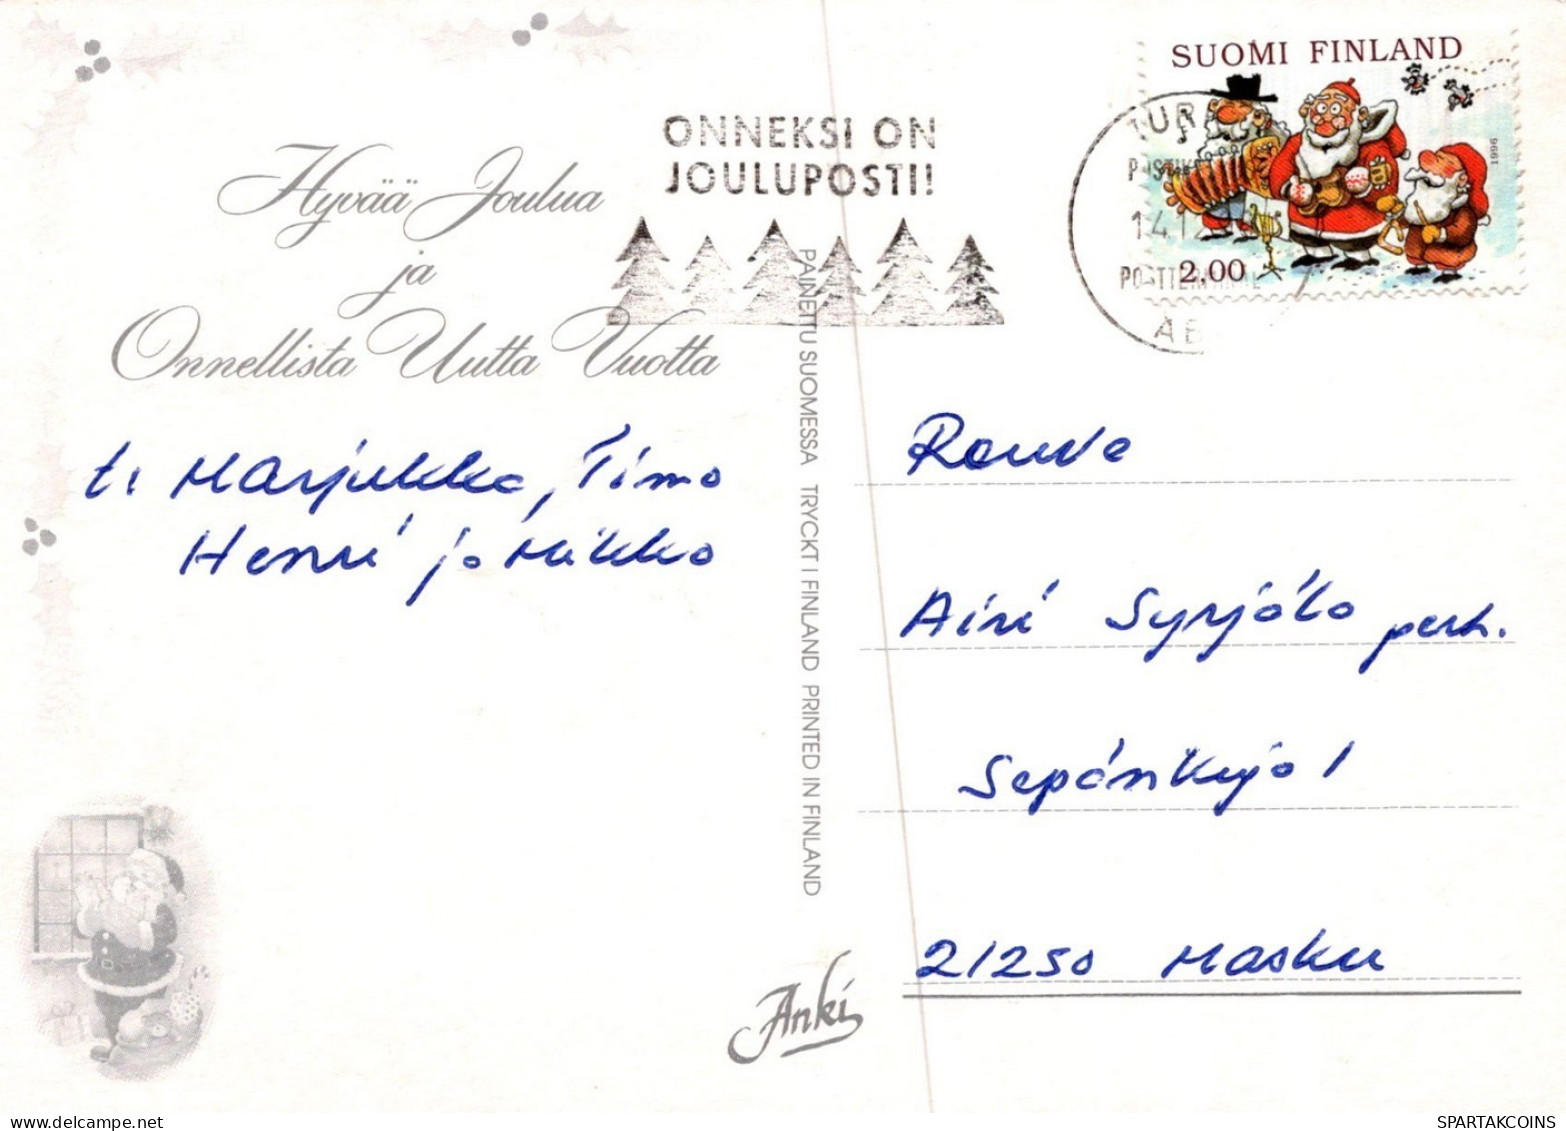 Hyvää Joulua
ja
Onnellista Uutta Vuotta
ONNEKSI ON
JOULUPOSTI!
SUOMI FINLAND
1996
2,00
TUR
14.1
t: Marjukka, Timo
Henri ja Mikko
PAINETTU SUOMESSA TRYCKT I FINLAND PRINTED IN FINLAND
Rouva
Airi Syrjälä perh.
Sepänkuja 1
21250 Masku
Anki
SPARTAKCOINS